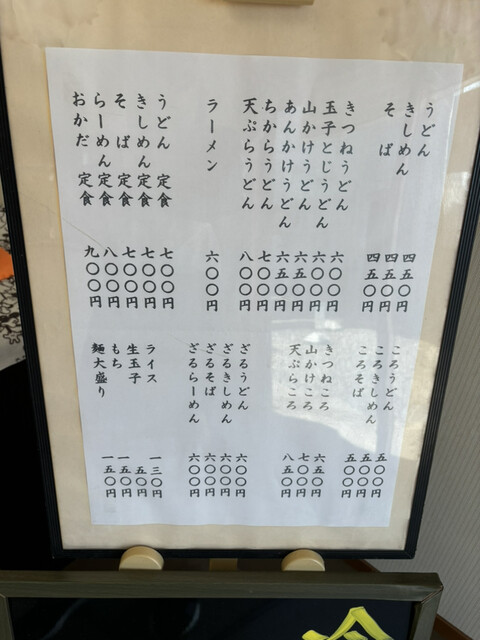 うどん 四五〇円
きしめん 四五〇円
そば 四五〇円
きつねうどん 六〇〇円
玉子とじうどん 六〇〇円
山かけうどん 六五〇円
あんかけうどん 六五〇円
ちからうどん 七〇〇円
天ぷらうどん 八〇〇円
ラーメン 六〇〇円
うどん定食 七〇〇円
きしめん定食 七〇〇円
そば定食 七〇〇円
らーめん定食 八〇〇円
おかだ定食 九〇〇円
ころうどん 五〇〇円
ころきしめん 五〇〇円
ころそば 五〇〇円
きつねころ 六五〇円
山かけころ 七〇〇円
天ぷらころ 八五〇円
ざるうどん 六〇〇円
ざるきしめん 六〇〇円
ざるそば 六〇〇円
ざるらーめん 六〇〇円
ライス 一三〇円
生玉子 五〇円
もち 一五〇円
麺大盛り 一五〇円